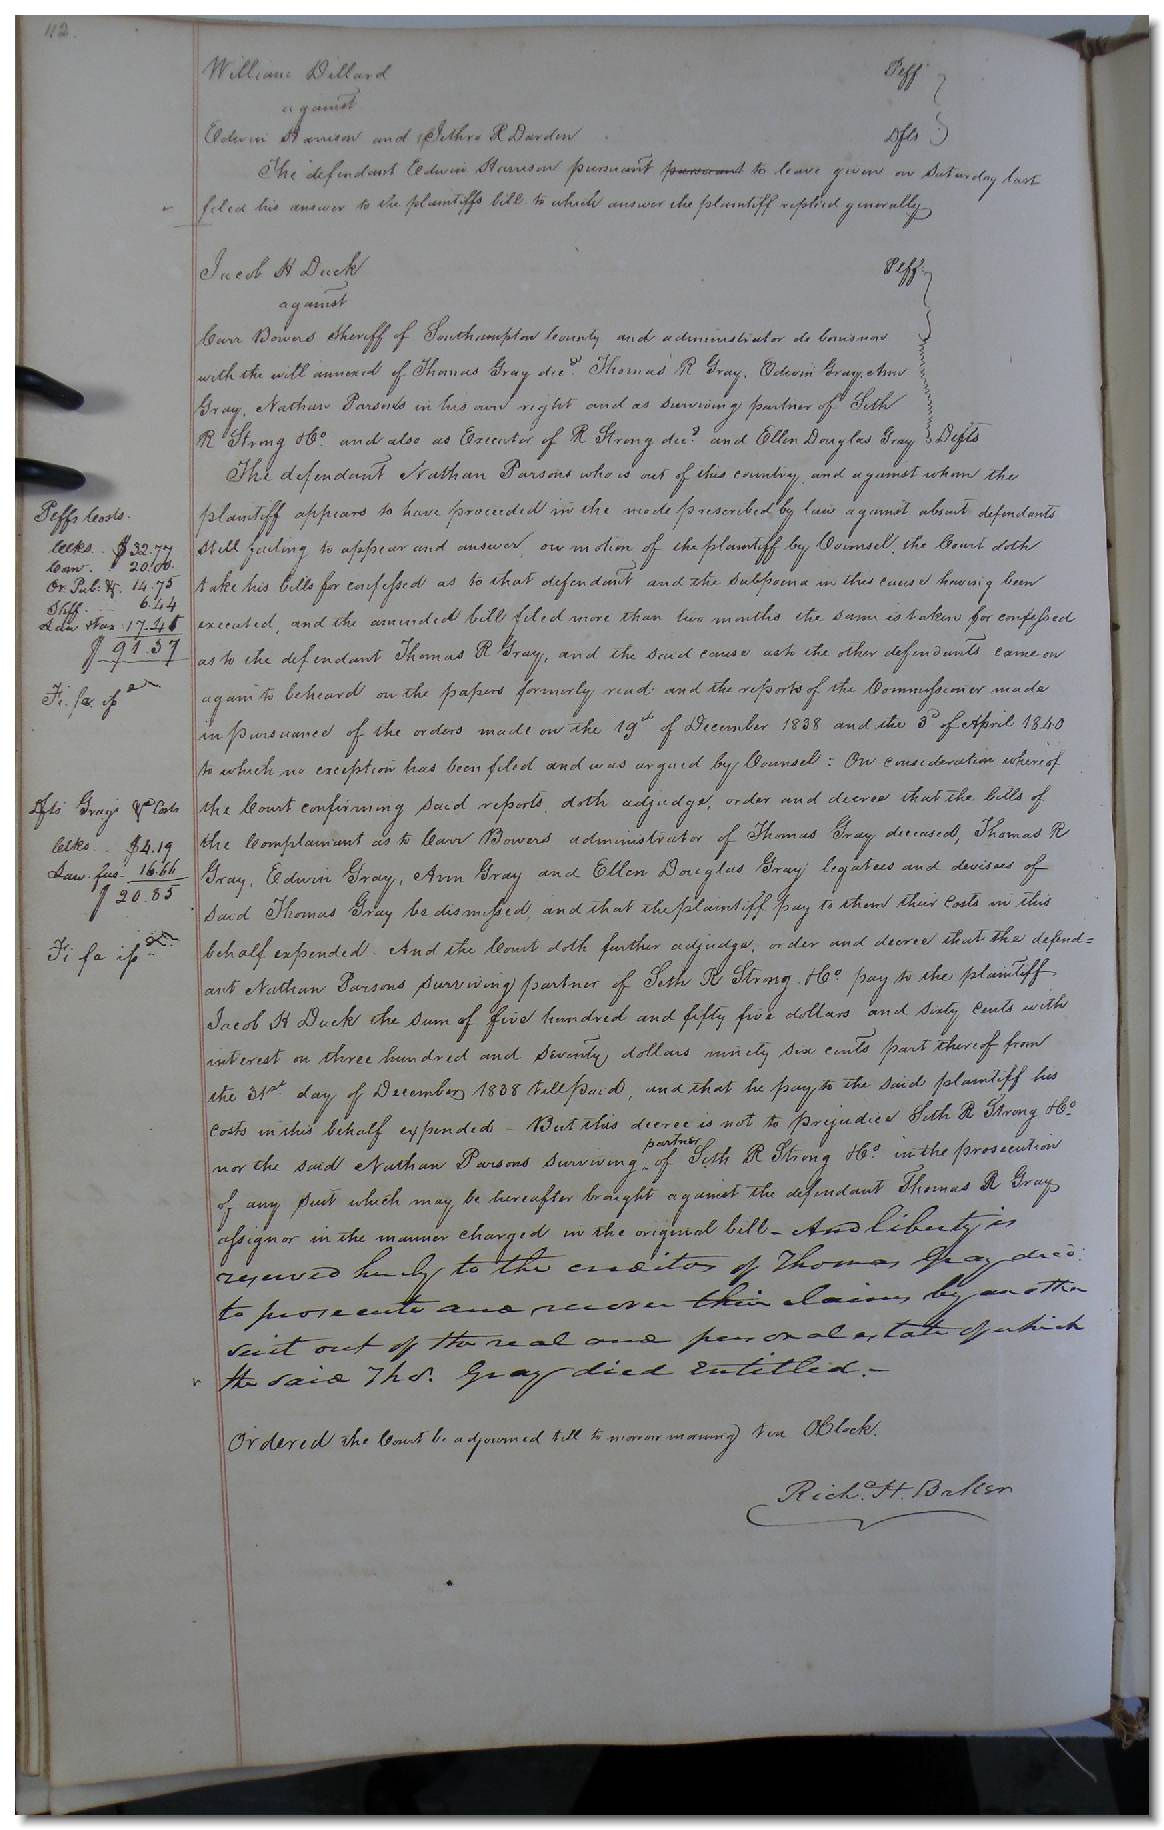 112.
William Dillard Plff
against
Edwin Harrison and Jethro R Darden Dfts
The defendant Edwin Harrison pursuant pursuant to leave given on Saturday last
filed his answer to the plaintiffs bill to which answer the plaintiff replied generally
Jacob H Duck Plff
against
Carr Bowers Sheriff of Southampton County and administrator de bonis non
with the will annexed of Thomas Gray decd. Thomas R Gray, Edwin Gray, Ann
Gray, Nathan Parsons in his own right and as surviving partner of Seth
R Strong & Co. and also as Executor of R Strong decd. and Ellen Douglas Gray Defts
The defendant Nathan Parsons who is out of this country, and against whom the
plaintiff appears to have proceeded in the mode prescribed by law against absent defendants
still failing to appear and answer, on motion of the plaintiff by Counsel, the Court doth
take his bills for confessed as to that defendant and the subpoena in this cause having been
executed, and the amended bill filed more than two months the same is taken for confessed
as to the defendant Thomas R Gray, and the said cause as to the other defendants came on
again to be heard on the papers formerly read and the reports of the Commissioner made
in pursuance of the orders made on the 19th of December 1838 and the 3d of April 1840
to which no exception has been filed and was argued by Counsel: On consideration whereof
the Court confirming said reports, doth adjudge, order and decree that the bills of
the Complainant as to Carr Bowers administrator of Thomas Gray deceased, Thomas R
Gray, Edwin Gray, Ann Gray and Ellen Douglas Gray legatees and devisees of
said Thomas Gray be dismissed, and that the plaintiff pay to them their costs in this
behalf expended. And the Court doth further adjudge, order and decree that the defend=
ant Nathan Parsons surviving partner of Seth R Strong & Co. pay to the plaintiff
Jacob H Duck the sum of five hundred and fifty five dollars and sixty cents with
interest on three hundred and seventy dollars ninety six cents part thereof from
the 31st day of December 1838 till paid, and that he pay to the said plaintiff his
costs in this behalf expended – But this decree is not to prejudice Seth R Strong & Co.
nor the said Nathan Parsons surviving partner of Seth R Strong & Co. in the prosecution
of any suit which may be hereafter brought against the defendant Thomas R Gray
assignor in the manner charged in the original bill – And liberty is
reserved hereby to the creditors of Thomas Gray decd.
to prosecute and recover their claims by another
suit out of the real and personal estate of which
the said Thos. Gray died entitled. –
Ordered the Court be adjourned till to morrow morning ten OClock.
Richd. H. Baker
Plffs Costs.
Clks. . $32.77
Com. 20.00.
Or. Pub: &c. 14.75
Shff. 6.44
Law &tax 17.41
$ 91.37
Fi. fa. isd
Dfts Gray &c Costs
Clks . . $4.19
Law. fees 16.66
$ 20.85
Fi fa isd